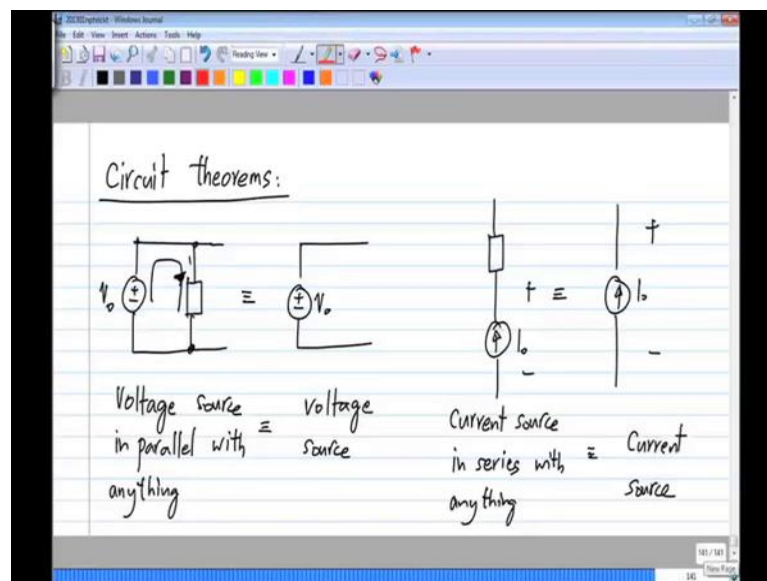 Windows Journal
View Insert Actions Tools Help
Reading View
B I
Circuit theorems:
V₀ + − i ≡ + − V₀
+ ≡ I₀ − + I₀ −
Voltage source in parallel with anything ≡ voltage source
Current source in series with anything ≡ Current source
141 / 141
New Page
141